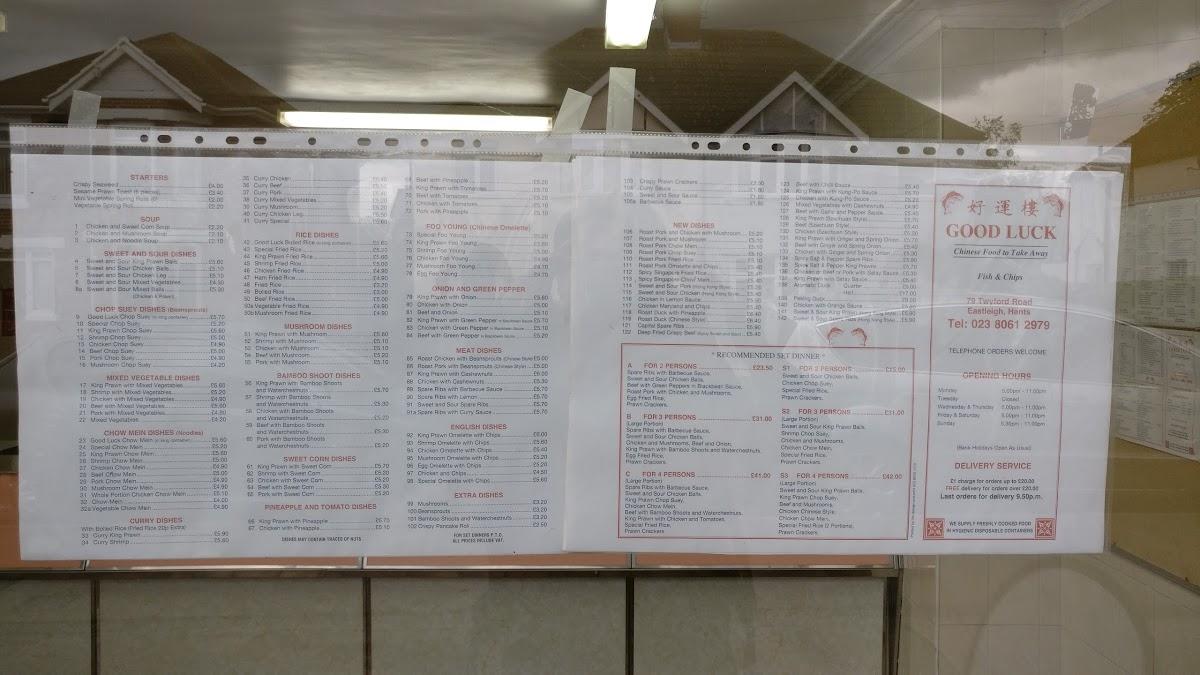 STARTERS
Crispy Seaweed £4.00
Sesame Prawn Toast (6 pieces) £3.40
Mini Vegetable Spring Rolls (6) £2.00
Vegetable Spring Roll £2.20
SOUP
1 Chicken and Sweet Corn Soup £2.20
2 Chicken and Mushroom Soup £2.10
3 Chicken and Noodle Soup £2.10
SWEET AND SOUR DISHES
4 Sweet and Sour King Prawn Balls £5.60
5 Sweet and Sour Chicken Balls £5.10
7 Sweet and Sour Chicken Leg £5.10
8 Sweet and Sour Mixed Vegetables £4.90
8a Sweet and Sour Mixed Balls
(Chicken & Prawn)
CHOP SUEY DISHES (Beansprouts)
9 Good Luck Chop Suey £5.70
10 Special Chop Suey £5.20
11 King Prawn Chop Suey £5.60
12 Shrimp Chop Suey £5.00
13 Chicken Chop Suey £4.90
14 Beef Chop Suey £5.00
15 Pork Chop Suey £4.90
16 Mushroom Chop Suey £4.20
MIXED VEGETABLE DISHES
17 King Prawn with Mixed Vegetables £5.60
18 Shrimp with Mixed Vegetables £5.20
19 Chicken with Mixed Vegetables £4.90
20 Beef with Mixed Vegetables £5.00
21 Pork with Mixed Vegetables £4.90
22 Mixed Vegetables £4.20
CHOW MEIN DISHES (Noodles)
23 Good Luck Chow Mein £5.60
24 Special Chow Mein £5.20
25 King Prawn Chow Mein £5.60
26 Shrimp Chow Mein £5.00
27 Chicken Chow Mein £4.90
28 Beef Chow Mein £5.00
29 Pork Chow Mein £4.90
30 Mushroom Chow Mein £4.90
31 Whole Portion Chicken Chow Mein £5.10
32 Chow Mein £4.00
32a Vegetable Chow Mein £4.90
CURRY DISHES
With Boiled Rice (Fried Rice 20p Extra)
33 Curry King Prawn £5.90
34 Curry Shrimp £5.60
35 Curry Chicken £5.40
36 Curry Beef
37 Curry Pork
38 Curry Mixed Vegetables £5.20
39 Curry Mushroom £5.20
40 Curry Chicken Leg £5.50
41 Curry Special £5.60
RICE DISHES
42 Good Luck Boiled Rice £5.60
43 Special Fried Rice
44 King Prawn Fried Rice
45 Shrimp Fried Rice
46 Chicken Fried Rice £4.90
47 Ham Fried Rice £4.90
48 Fried Rice
49 Boiled Rice
50 Beef Fried Rice £5.00
50a Vegetable Fried Rice £4.90
50b Mushroom Fried Rice £4.90
MUSHROOM DISHES
51 King Prawn with Mushroom £5.60
52 Shrimp with Mushroom £5.10
53 Chicken with Mushroom £5.10
54 Beef with Mushroom £5.20
55 Pork with Mushroom £5.10
BAMBOO SHOOT DISHES
56 King Prawn with Bamboo Shoots
and Waterchestnuts £5.70
57 Shrimp with Bamboo Shoots
and Waterchestnuts £5.30
58 Chicken with Bamboo Shoots
and Waterchestnuts £5.20
59 Beef with Bamboo Shoots
and Waterchestnuts £5.30
60 Pork with Bamboo Shoots
and Waterchestnuts £5.20
SWEET CORN DISHES
61 King Prawn with Sweet Corn £5.70
62 Shrimp with Sweet Corn £5.20
63 Chicken with Sweet Corn £5.20
64 Beef with Sweet Corn £5.30
65 Pork with Sweet Corn £5.20
PINEAPPLE AND TOMATO DISHES
66 King Prawn with Pineapple £5.70
67 Chicken with Pineapple £5.10
DISHES MAY CONTAIN TRACES OF NUTS
68 Beef with Pineapple £5.20
69 King Prawn with Tomatoes £5.70
70 Beef with Tomatoes £5.20
71 Chicken with Tomatoes £5.10
72 Pork with Pineapple £5.10
FOO YOUNG (Chinese Omelette)
73 Special Foo Young £5.20
74 King Prawn Foo Young £5.60
75 Shrimp Foo Young £5.00
76 Chicken Foo Young £4.90
77 Mushroom Foo Young £4.70
78 Egg Foo Young £4.70
ONION AND GREEN PEPPER
79 King Prawn with Onion £5.60
80 Chicken with Onion £5.00
81 Beef and Onion £5.10
82 King Prawn with Green Pepper in Blackbean Sauce £5.70
83 Chicken with Green Pepper in Blackbean Sauce £5.10
84 Beef with Green Pepper in Blackbean Sauce £5.20
MEAT DISHES
85 Roast Chicken with Beansprouts (Chinese Style) £5.00
86 Roast Pork with Beansprouts (Chinese Style) £5.00
87 King Prawn with Cashewnuts £6.00
88 Chicken with Cashewnuts £5.30
89 Spare Ribs with Barbecue Sauce £5.70
90 Spare Ribs with Lemon £5.70
91 Sweet and Sour Spare Ribs £5.70
91a Spare Ribs with Curry Sauce £5.70
ENGLISH DISHES
92 King Prawn Omelette with Chips £6.00
93 Shrimp Omelette with Chips £5.60
94 Chicken Omelette with Chips £5.40
95 Mushroom Omelette with Chips £5.20
96 Egg Omelette with Chips £5.20
97 Chicken and Chips £4.50
98 Special Omelette with Chips £5.60
EXTRA DISHES
99 Mushrooms £3.20
100 Beansprouts £3.20
101 Bamboo Shoots and Waterchestnuts £3.20
102 Crispy Pancake Roll £2.50
FOR SET DINNERS P.T.O.
ALL PRICES INCLUDE VAT.
103 Crispy Prawn Crackers
104 Curry Sauce
105 Sweet and Sour Sauce
105a Barbecue Sauce
NEW DISHES
106 Roast Pork with Chicken and Mushroom £5.20
107 Roast Pork and Mushroom £5.10
108 Roast Pork Chow Mein £5.10
109 Roast Pork Chop Suey £5.10
110 Roast Pork Fried Rice
111 Roast Pork Omelette and Chips
112 Spicy Singapore Fried Rice
113 Spicy Singapore Chow Mein
114 Sweet and Sour Pork (Hong Kong Style)
115 Sweet and Sour Chicken (Hong Kong Style)
116 Chicken in Lemon Sauce
117 Chicken Maryland and Chips
118 Roast Duck with Pineapple
119 Roast Duck (Chinese Style)
121 Capital Spare Ribs £5.90
122 Deep Fried Crispy Beef
123 Beef with Chilli Sauce £5.40
124 King Prawn with Kung-Po Sauce £5.70
125 Chicken with Kung-Po Sauce
126 Mixed Vegetables with Cashewnuts £4.90
127 Beef with Garlic and Pepper Sauce
128 King Prawn (Szechuan Style)
129 Beef (Szechuan Style)
130 Chicken (Szechuan Style)
131 King Prawn with Ginger and Spring Onion
132 Beef with Ginger and Spring Onion
133 Chicken with Ginger and Spring Onion
134 Spicy Salt & Pepper Spare Ribs
135 Spicy Salt & Pepper King Prawns
136 Chicken or Beef or Pork with Satay Sauce
137 King Prawn with Satay Sauce
138 Aromatic Duck Quarter
Half
139 Peking Duck
140 Chicken with Orange Sauce
* RECOMMENDED SET DINNER *
A FOR 2 PERSONS £23.50
Spare Ribs with Barbecue Sauce,
Sweet and Sour Chicken Balls,
Beef with Green Peppers in Blackbean Sauce,
Roast Pork with Chicken and Mushrooms,
Egg Fried Rice,
Prawn Crackers.
B FOR 3 PERSONS £31.00
(Large Portion)
Spare Ribs with Barbecue Sauce,
Sweet and Sour Chicken Balls,
Chicken and Mushrooms, Beef and Onion,
King Prawn with Bamboo Shoots and Waterchestnuts,
Egg Fried Rice,
Prawn Crackers.
C FOR 4 PERSONS £41.00
(Large Portion)
Spare Ribs with Barbecue Sauce,
Sweet and Sour Chicken Balls,
King Prawn Chop Suey,
Chicken Chow Mein,
Beef with Bamboo Shoots and Waterchestnuts,
King Prawn with Chicken and Tomatoes,
Special Fried Rice,
Prawn Crackers.
S1 FOR 2 PERSONS £15.00
Sweet and Sour Chicken Balls,
Chicken Chop Suey,
Special Fried Rice,
Prawn Crackers.
S2 FOR 3 PERSONS £21.00
(Large Portion)
Sweet and Sour King Prawn Balls,
Shrimp Chop Suey,
Chicken and Mushrooms,
Chicken Chow Mein,
Special Fried Rice,
Prawn Crackers.
S3 FOR 4 PERSONS £42.00
(Large Portion)
Sweet and Sour King Prawn Balls,
King Prawn Chop Suey,
Beef and Mushrooms,
Chicken Chinese Style,
Chicken Chow Mein,
Special Fried Rice (2 Portions),
Prawn Crackers.
好運樓
GOOD LUCK
Chinese Food to Take Away
Fish & Chips
79 Twyford Road
Eastleigh, Hants
Tel: 023 8061 2979
TELEPHONE ORDERS WELCOME
OPENING HOURS
Monday 5.00pm - 11.00pm
Tuesday Closed
Wednesday & Thursday 5.00pm - 11.00pm
Friday & Saturday 5.00pm - 11.00pm
Sunday 5.30pm - 11.00pm
(Bank Holidays Open As Usual)
DELIVERY SERVICE
£1 charge for orders up to £20.00
FREE delivery for orders over £20.00
Last orders for delivery 9.50p.m.
WE SUPPLY FRESHLY COOKED FOOD
IN HYGIENIC DISPOSABLE CONTAINERS